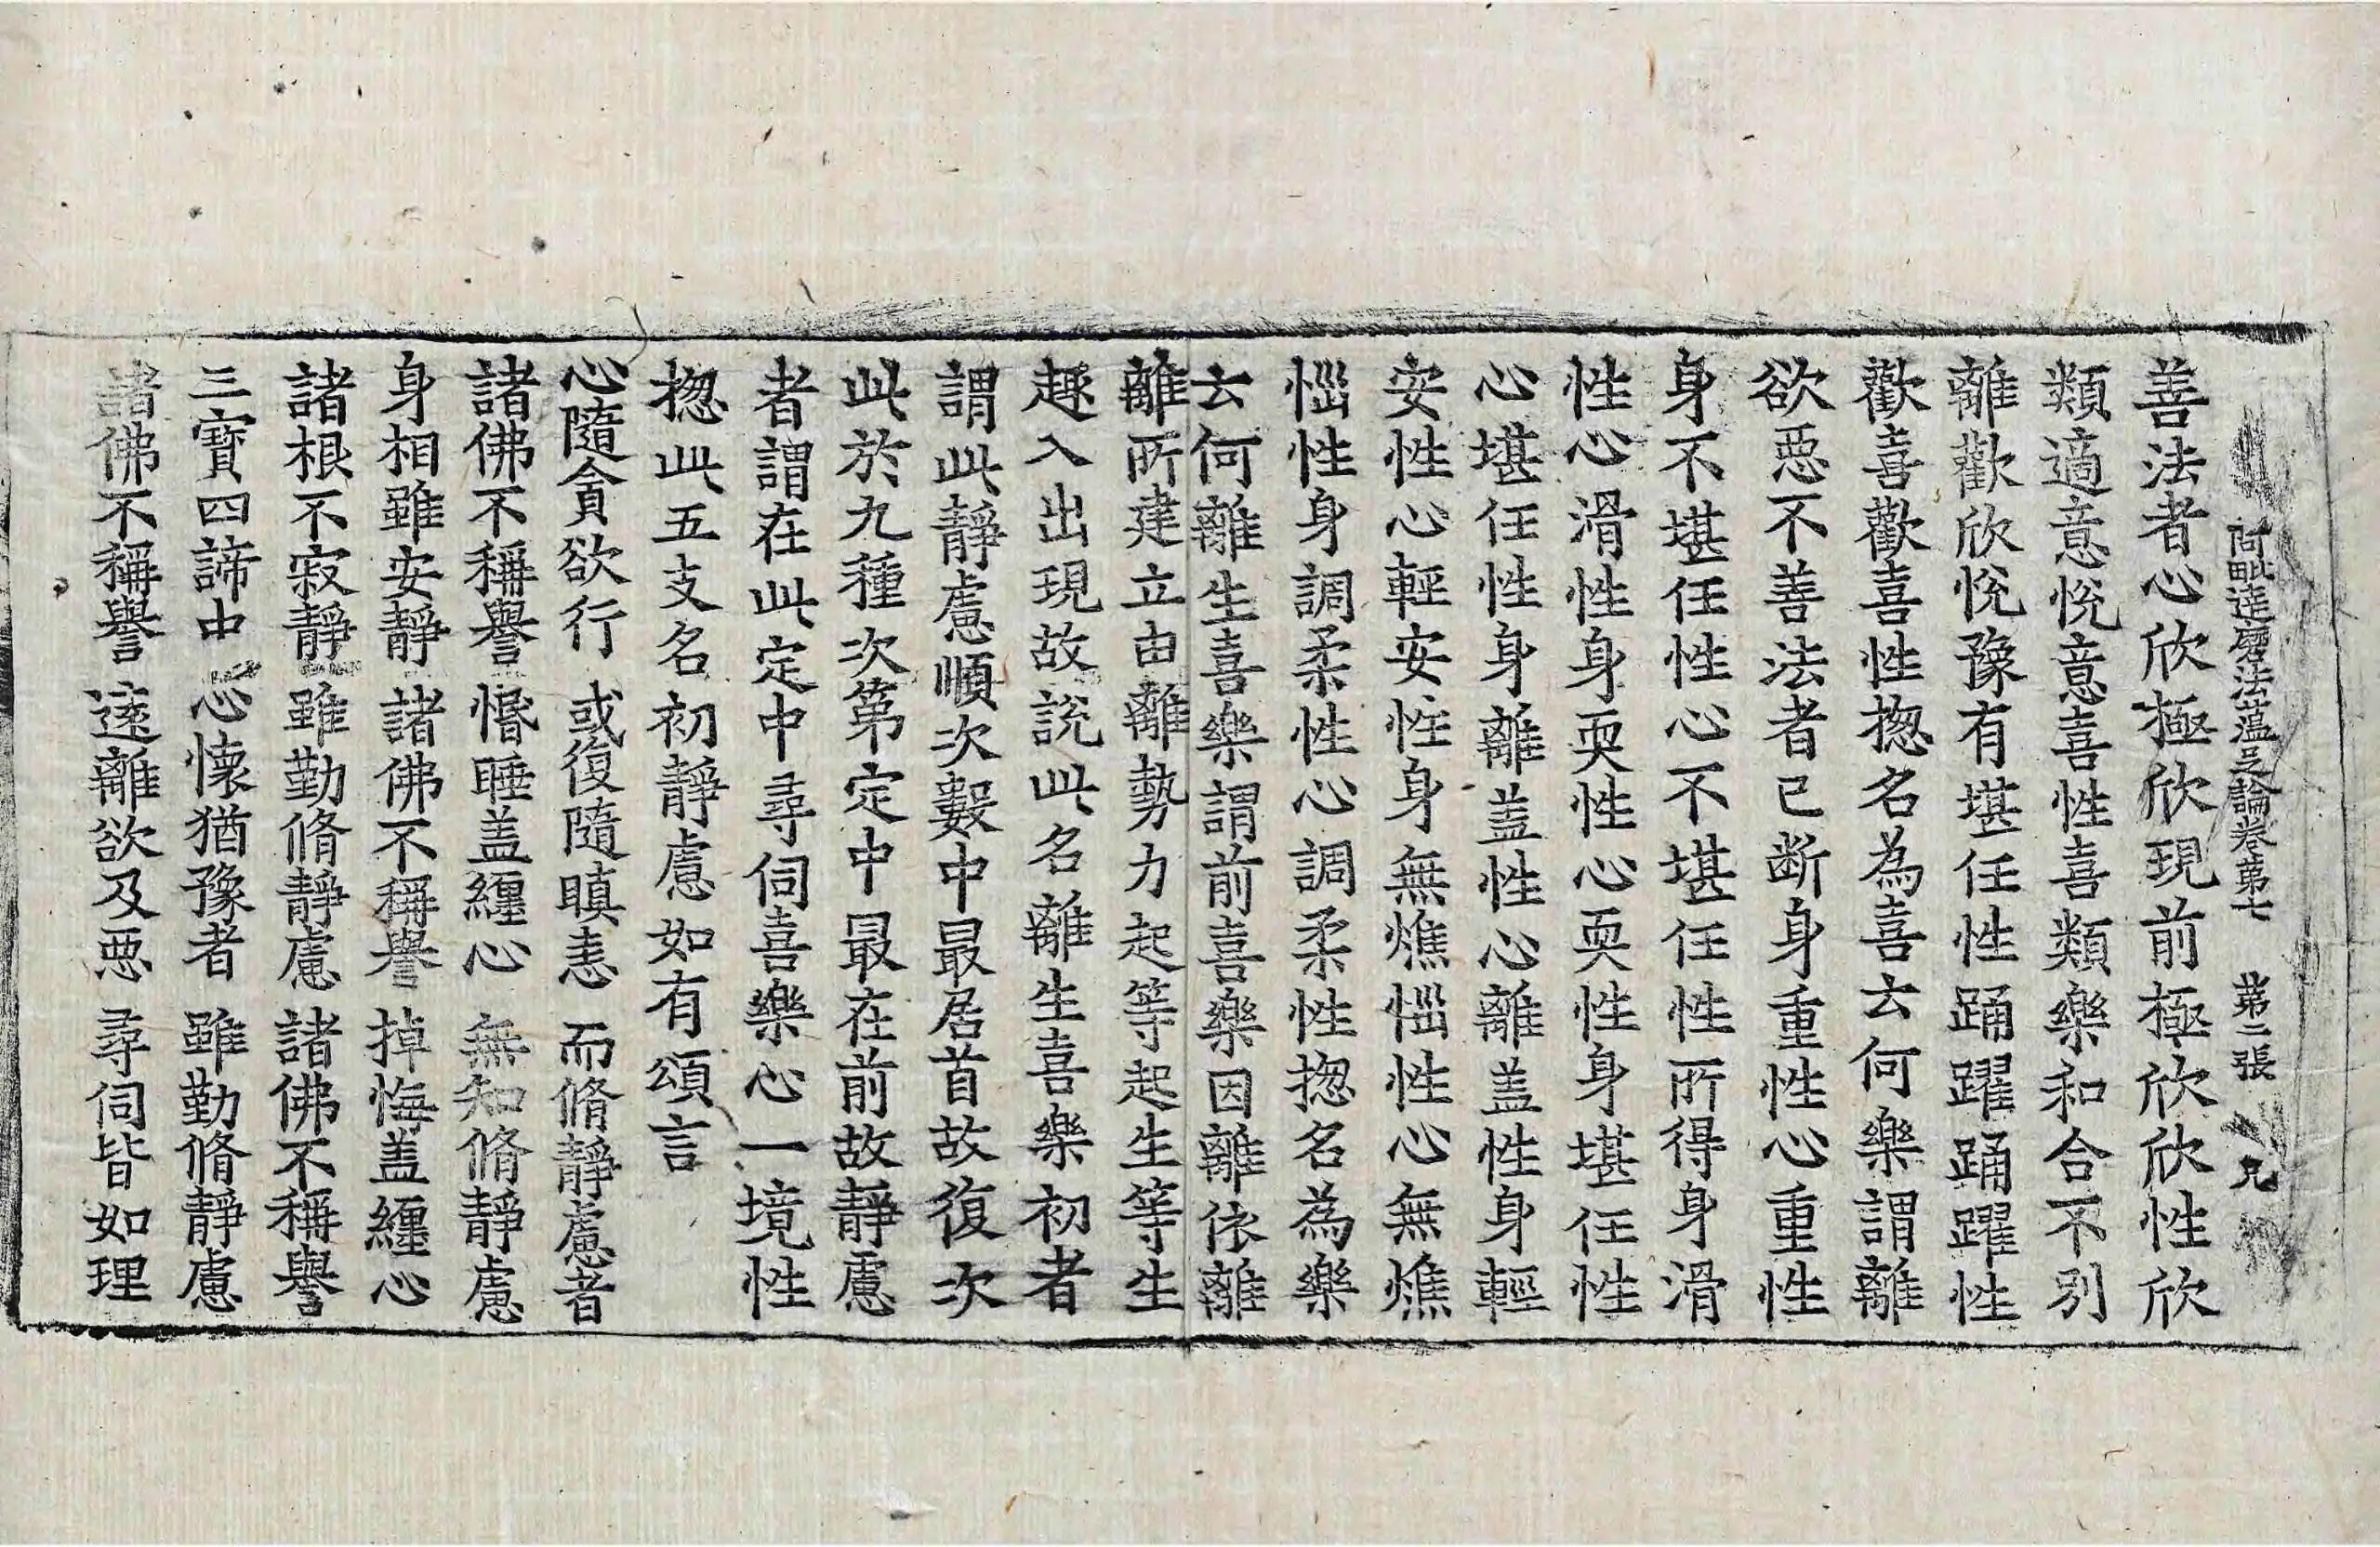 阿毗達磨法蕰足論卷第七 第二張 兄
善法者心欣極欣現前極欣欣性欣
類適意悅意喜性喜類樂和合不別
離歡欣悅豫有堪任性踊躍踊躍性
歡喜歡喜性揔名為喜云何樂謂離
欲惡不善法者已断身重性心重性
身不堪任性心不堪任性所得身滑
性心滑性身耎性心耎性身堪任性
心堪任性身離盖性心離盖性身輕
安性心輕安性身無燋惱性心無燋
惱性身調柔性心調柔性揔名為樂
云何離生喜樂謂前喜樂因離依離
離所建立由離勢力起等起生等生
趣入出現故說此名離生喜樂初者
謂此靜慮順次數中最居首故復次
此於九種次第定中最在前故靜慮
者謂在此定中尋伺喜樂心一境性
揔此五支名初靜慮如有頌言
心隨貪欲行 或復隨瞋恚 而脩靜慮者
諸佛不稱譽 惛睡盖纏心 無知脩靜慮
身相雖安靜 諸佛不稱譽 掉悔盖纏心
諸根不寂靜 雖勤脩靜慮 諸佛不稱譽
三寶四諦中 心懷猶豫者 雖勤脩靜慮
諸佛不稱譽 遠離欲及惡 尋伺皆如理